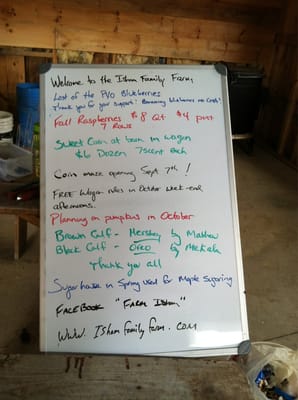 Welcome to the Isham Family Farm
Last of the PYO Blueberries
Thank you for your support!
Fall Raspberries $8 Qt $4 pint
7 Rows
Sweet Corn at barn in wagon
$6 Dozen 75cent each
Corn maze opening Sept 7th!
FREE Wagon rides in October week-end
afternoons.
Planning on pumpkins in October
Brown Calf - Hershey by Mathew
Black Calf - Oreo by Michaela
Thank you all
Sugar house in Spring used for Maple Sugaring
FACEBOOK "Farm Isham"
WWW. IshamFamilyfarm.com